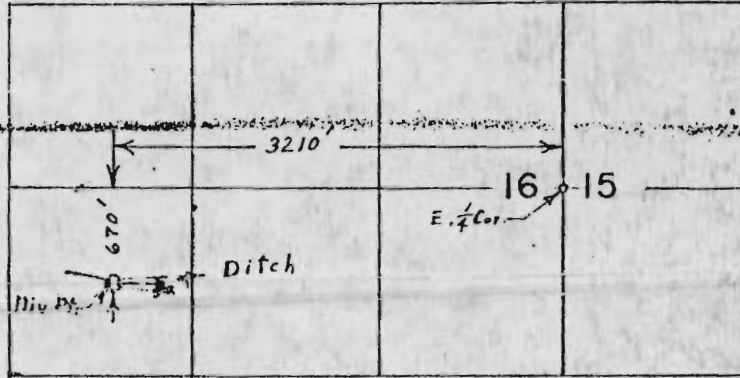 3210'
16 15
E. ¼ Cor.
670'
Ditch
Div. Pt.